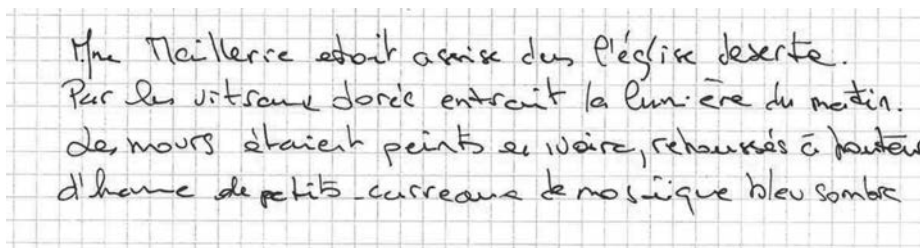 Mme Maillerie etait assise dans l'église deserte.
Par les vitraux dorés entrait la lumière du matin.
Les murs étaient peints en ivoire, rehaussés à hauteur
d'homme de petits carreaux de mosaique bleu sombre